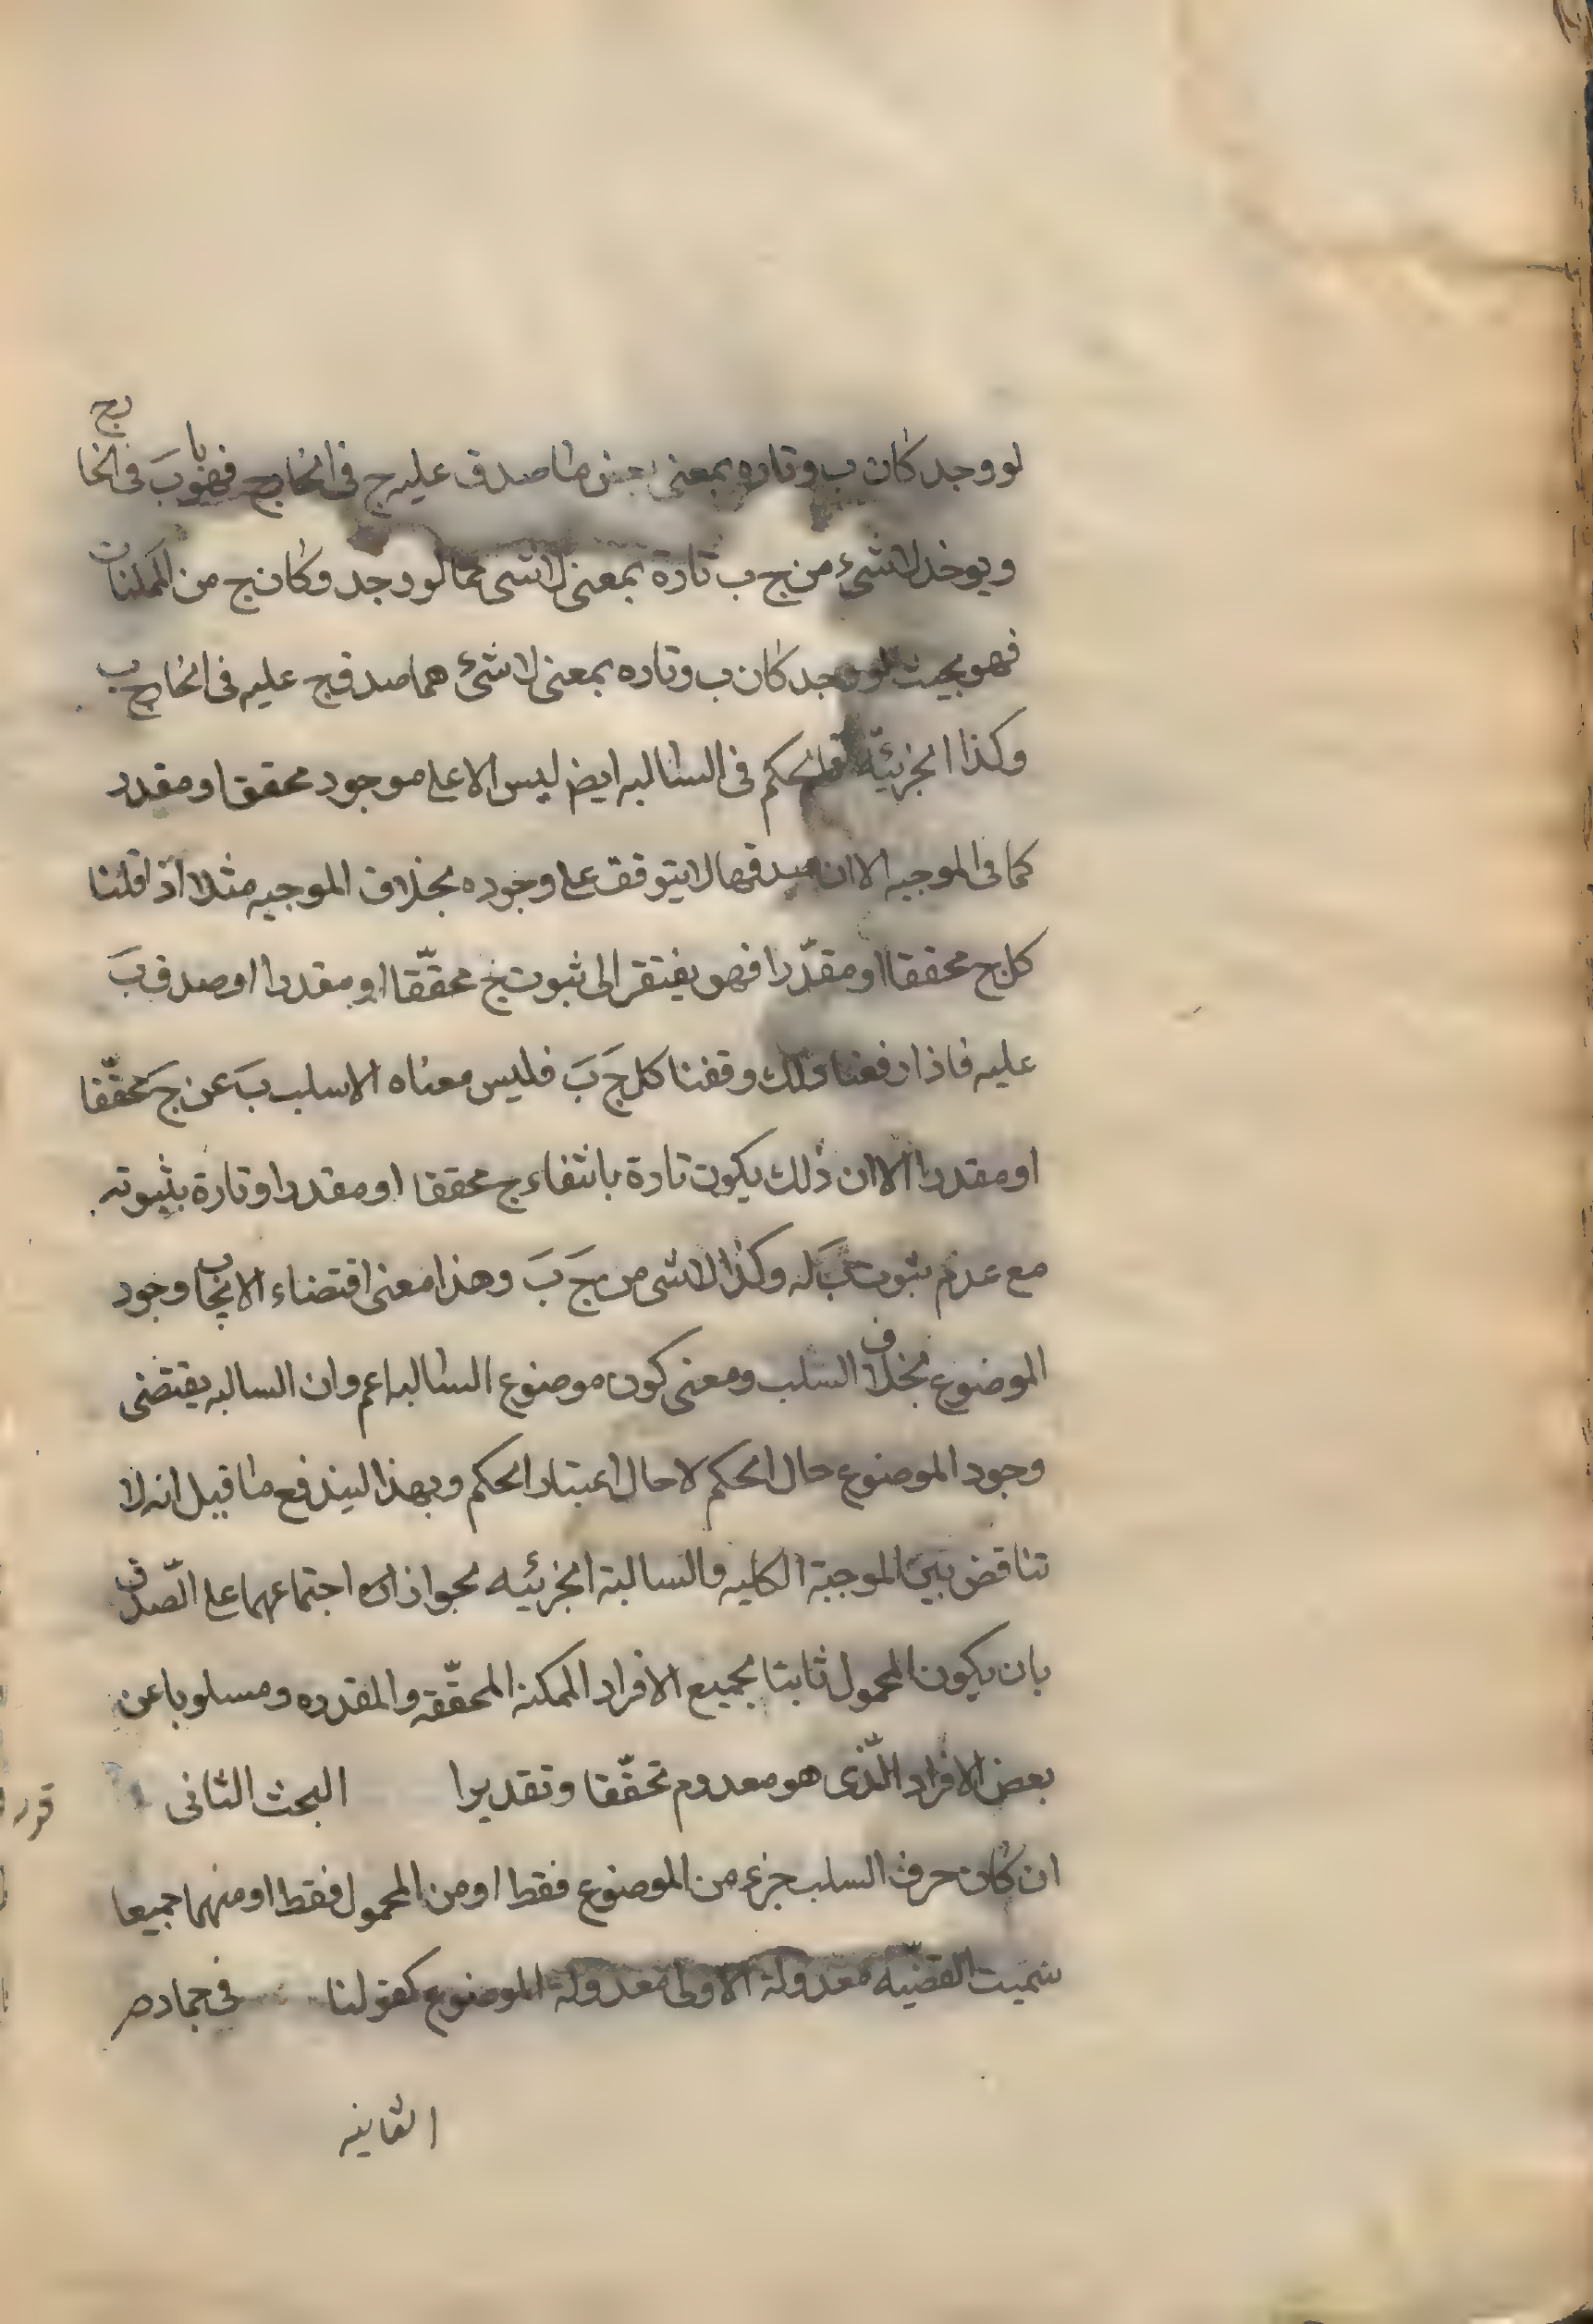 لو وجد كان ب وتاره بمعنى بعض ما صدق عليه ج فى الخارج فهو ب فى الخارج
ويوخذ لا شئ من ج ب تارة بمعنى لا شى مما لو وجد وكان ج من الممكنات
فهو بحيث لو وجد كان ب وتاره بمعنى لا شئ مما صدق ج عليه فى الخارج ب
وكذا الجزئيّة فالحكم فى السالبه ايض ليس الا على موجود محقق او مقدر
كما فى الموجبه الا ان صدقها لا يتوقف على وجوده بخلاف الموجبه مثلا اذا قلنا
كل ج محققا او مقدّرا فهو يفتقر الى ثبوت ج محقّقا او مقدرا او صدق ب
عليه فاذا رفعنا ذلك وقفنا كل ج ب فليس معناه الا سلب ب عن ج محقّقا
او مقدرا الا ان ذلك يكون تارة بانتفاء ج محققا او مقدرا وتارة بثبوته
مع عدم ثبوت ب له وكذا لا شى من ج ب وهذا معنى اقتضاء الايجاب وجود
الموضوع بخلاف السلب ومعنى كون موضوع السالبه اعم وان السالبه يقتضى
وجود الموضوع حال الحكم لا حال اعتبار الحكم وبهذا اليندفع ما قيل انه لا
تناقض بين الموجبة الكليه والسالبة الجزئيه لجواز اجتماعهما على الصّدق
بان يكون المحمول ثابتا لجميع الافراد الممكنه المحقّقه والمقدره ومسلوبا عن
بعض الافراد الّذى هو معدوم تحقّقا وتقديرا البحث الثانى
ان كان حرف السلب جزء من الموضوع فقط او من المحمول فقط او منهما جميعا
سميت القضيّه معدولة الاولى معدولة الموضوع كقولنا فى جماد
الثانيه